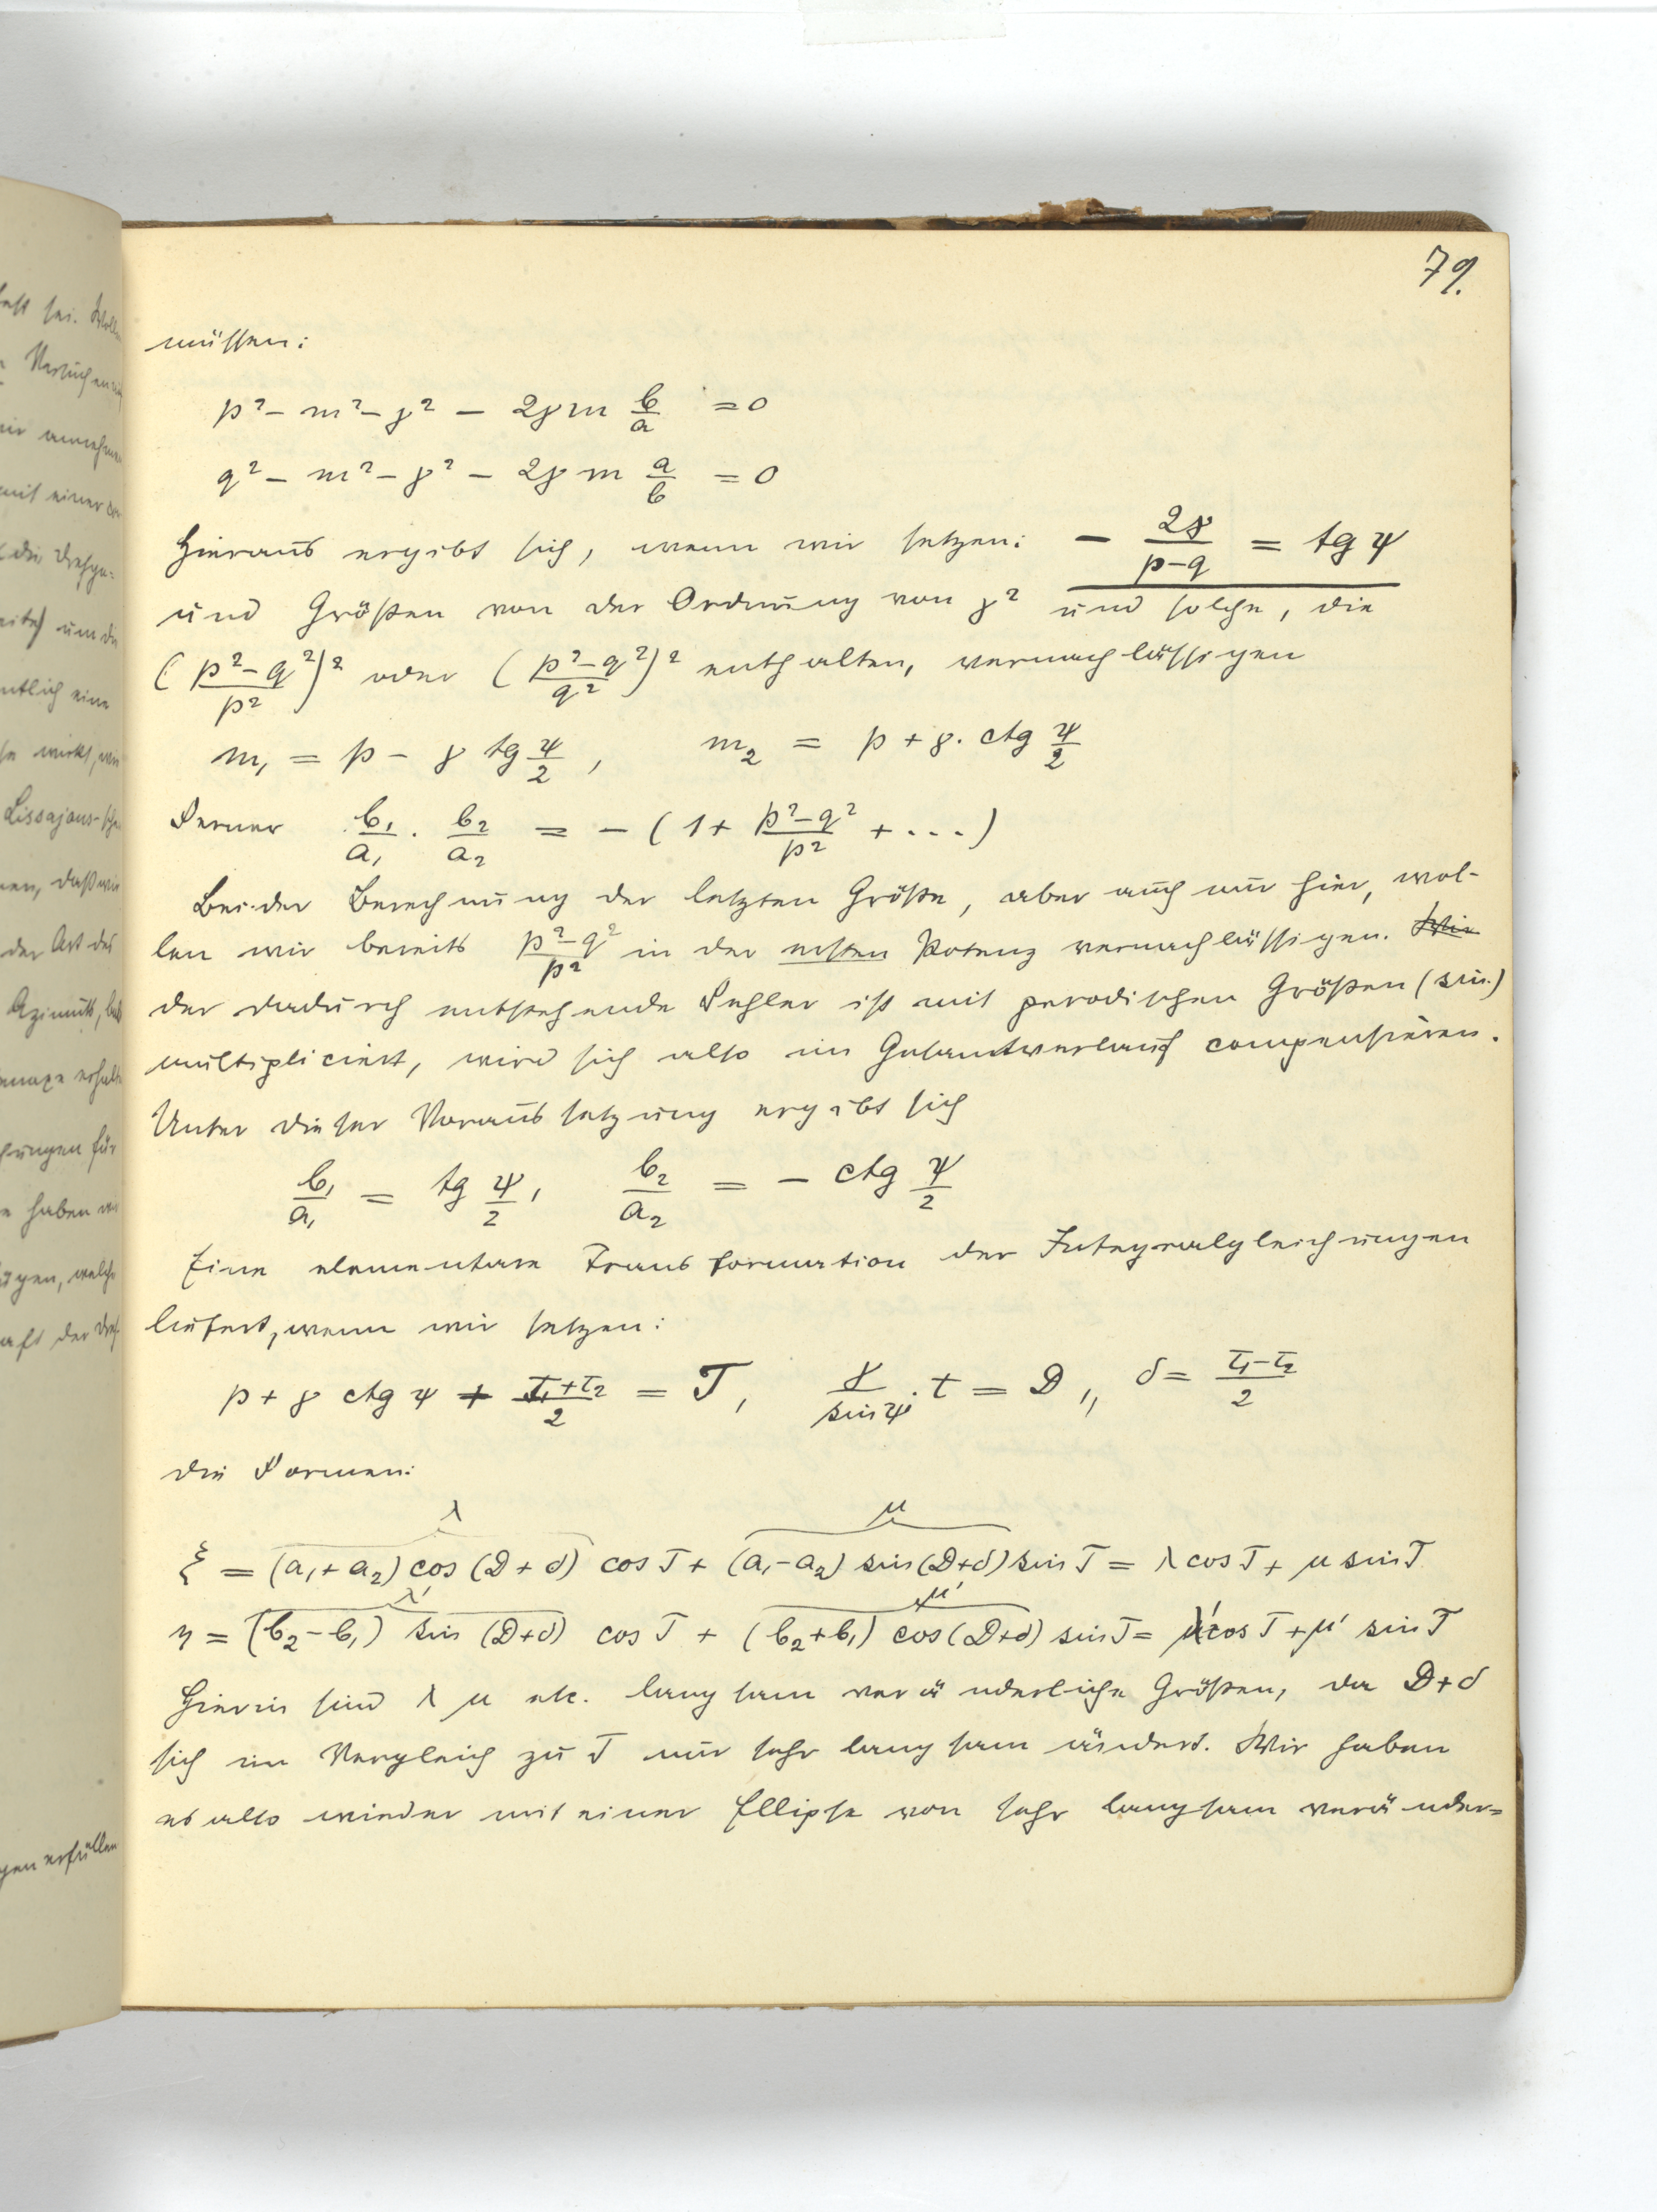 79.
müssen:
p² − m² − γ² − 2γm b/a = 0
q² − m² − γ² − 2γm a/b = 0
Hieraus ergibt sich, wenn wir setzen: − 2γ/(p−q) = tg ψ
und Größen von der Ordnung von γ² und solche, die
((p²−q²)/p²)² oder ((p²−q²)/q²)² enthalten, vernachlässigen
m₁ = p − γ tg ψ/2, m₂ = p + γ. ctg ψ/2
Ferner b₁/a₁ · b₂/a₂ = − (1 + (p²−q²)/p² + ...)
Bei der Berechnung der letzten Größe, aber auch nur hier, wol-
len wir bereits (p²−q²)/p² in der ersten Potenz vernachlässigen. Wir
der dadurch entstehende Fehler ist mit perodischen Größen (sin.)
multipliciert, wird sich also im Gesamtverlauf compensieren.
Unter dieser Voraussetzung ergibt sich
b₁/a₁ = tg ψ/2, b₂/a₂ = − ctg ψ/2
Eine elementare Transformation der Integralgleichungen
liefert, wenn wir setzen:
p + γ ctg ψ + (τ₁+τ₂)/2 = T, γ/sin ψ · t = D,, δ = (τ₁−τ₂)/2
die Formen:
λ μ
ξ = (a₁+a₂) cos (D+δ) cos T + (a₁−a₂) sin (D+δ) sin T = λ cos T + μ sin T
λ' μ'
η = (b₂−b₁) sin (D+δ) cos T + (b₂+b₁) cos (D+δ) sin T = λ' cos T + μ' sin T
Hierin sind λ μ etc. langsam veränderliche Größen, da D+δ
sich im Vergleich zu T nur sehr langsam ändert. Wir haben
es also wieder mit einer Ellipse von sehr langsam veränder=